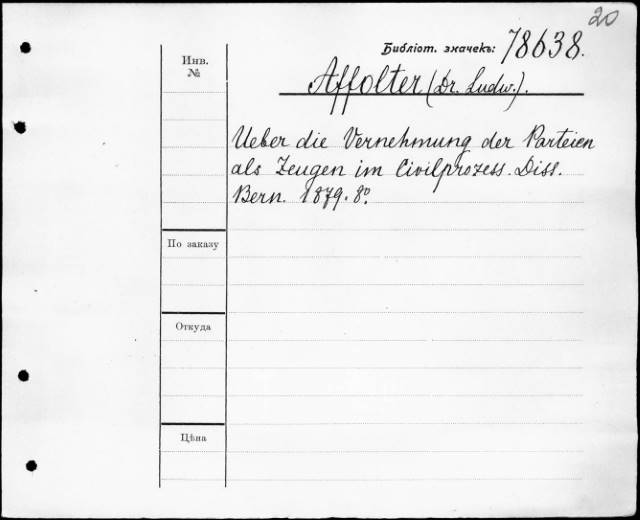 20
Библіот. значекъ: 78638.
Инв.
№
Affolter (Dr. Ludw.).
Ueber die Vernehmung der Parteien
als Zeugen im Civilprozess. Diss.
Bern. 1879. 8º.
По заказу
Откуда
Цѣна